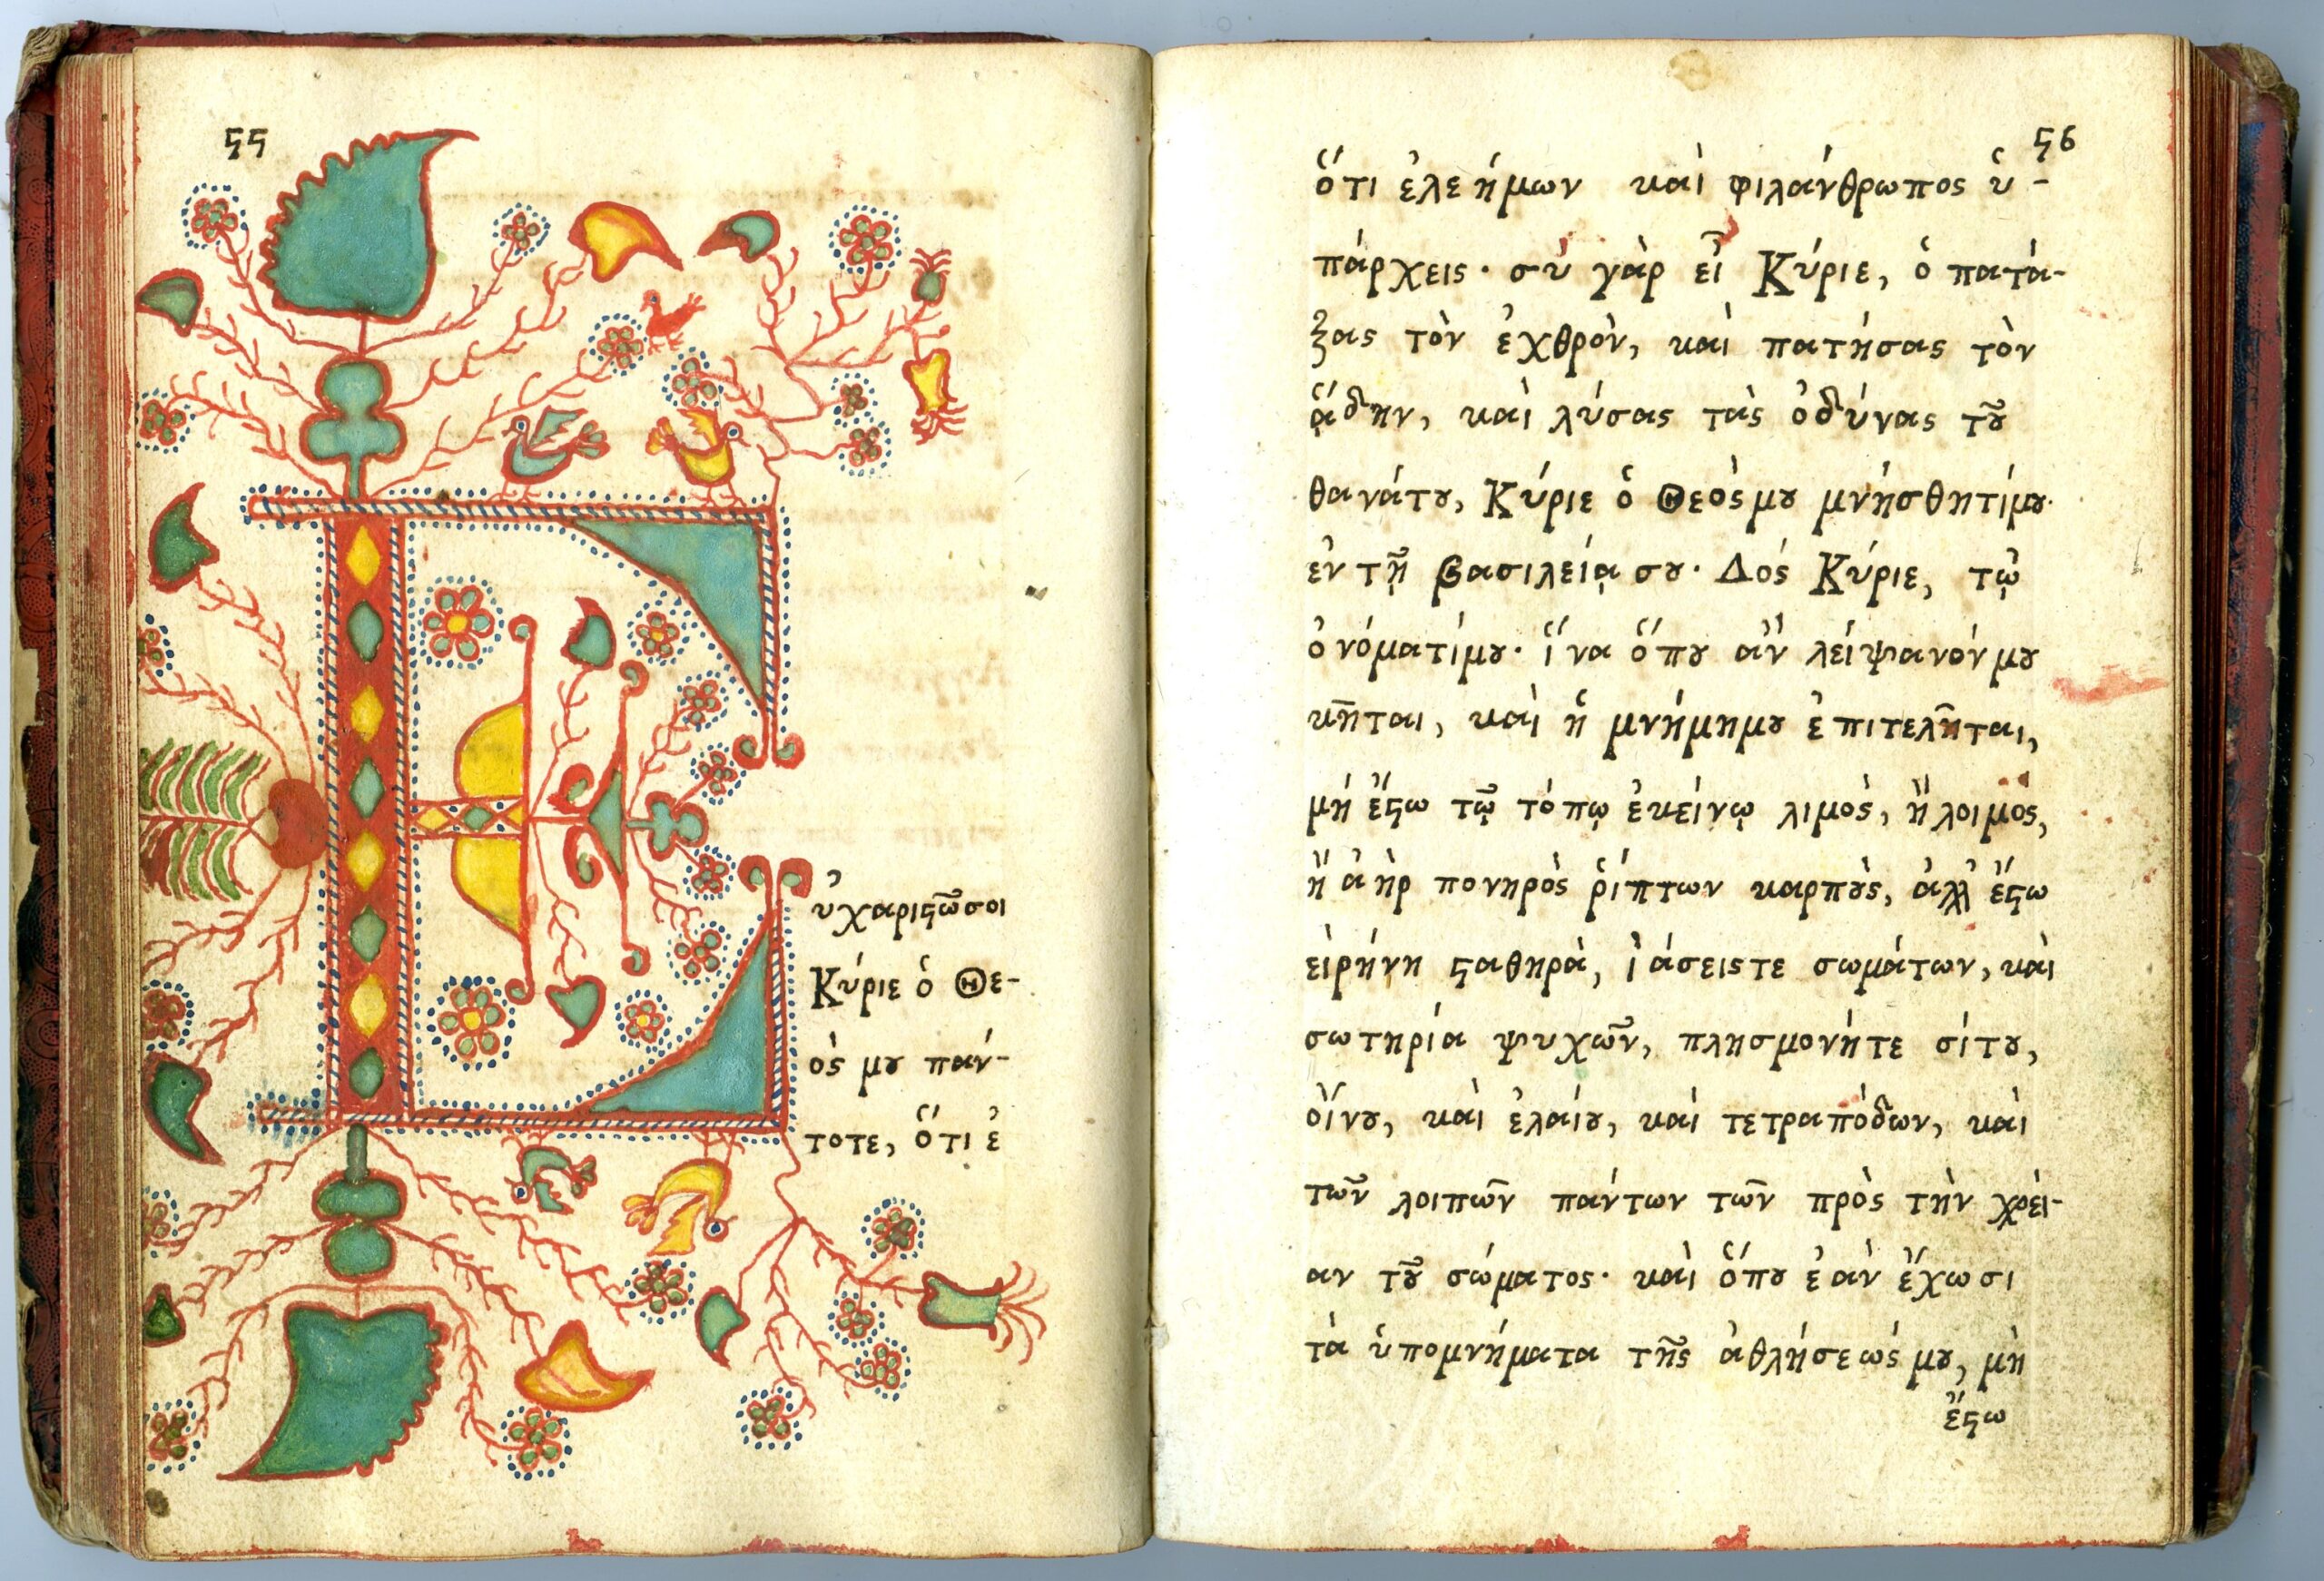 55
Εὐχαριϛῶσοι
Κύριε ὁ Θε-
ός μȣ πάν-
τοτε, ὅτι ἐ
56
ὅτι ἐλεήμων καὶ φιλάνθρωπος ὑ-
πάρχεις· σὺ γὰρ εἶ Κύριε, ὁ πατά-
ξας τὸν ἐχθρὸν, καὶ πατήσας τὸν
ᾅδην, καὶ λύσας τὰς ὀδύνας τȣ͂
θανάτȣ, Κύριε ὁ Θεὸς μȣ μνήσθητίμȣ·
ἐν τῇ βασιλείᾳ σȣ· Δός Κύριε, τῷ
ὀνόματίμȣ· ἵνα ὅπȣ ἂν λείψανόν μȣ
κῆται, καὶ ἡ μνήμημȣ ἐπιτελῆται,
μή ἔϛω τῷ τόπῳ ἐκείνῳ λιμὸς, ἢ λοιμὸς,
ἢ ἀὴρ πονηρὸς ῥίπτων καρπȣς, ἀλλ' ἔϛω
εἰρήνη ϛαθηρὰ, ἰάσειςτε σωμάτων, καὶ
σωτηρία ψυχῶν, πλησμονήτε σίτȣ,
οἴνȣ, καὶ ἐλαίȣ, καὶ τετραπόδων, καὶ
τῶν λοιπῶν πάντων τῶν πρὸς τὴν χρεί-
αν τȣ͂ σώματος· καὶ ὅπȣ ἐὰν ἔχωσι
τὰ ὑπομνήματα τῆς ἀθλήσεώς μȣ, μὴ
ἔϛω